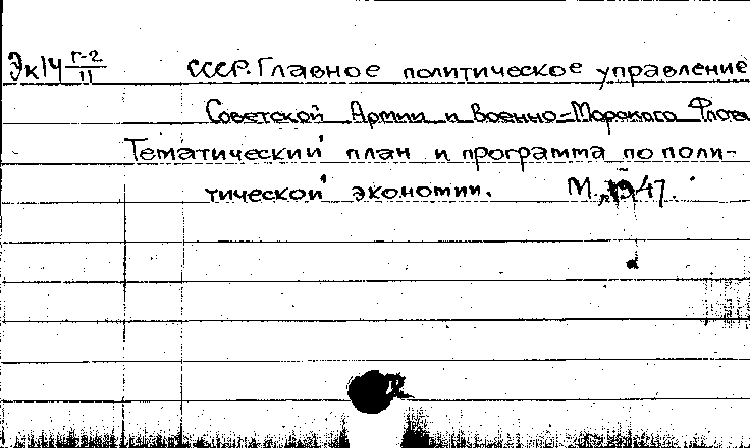 Эк14 Г-2/11 СССР. Главное политическое управление
Советской Армии и Военно-Морского Флота
Тематический план и программа по поли-
тической экономии. М., 1947.